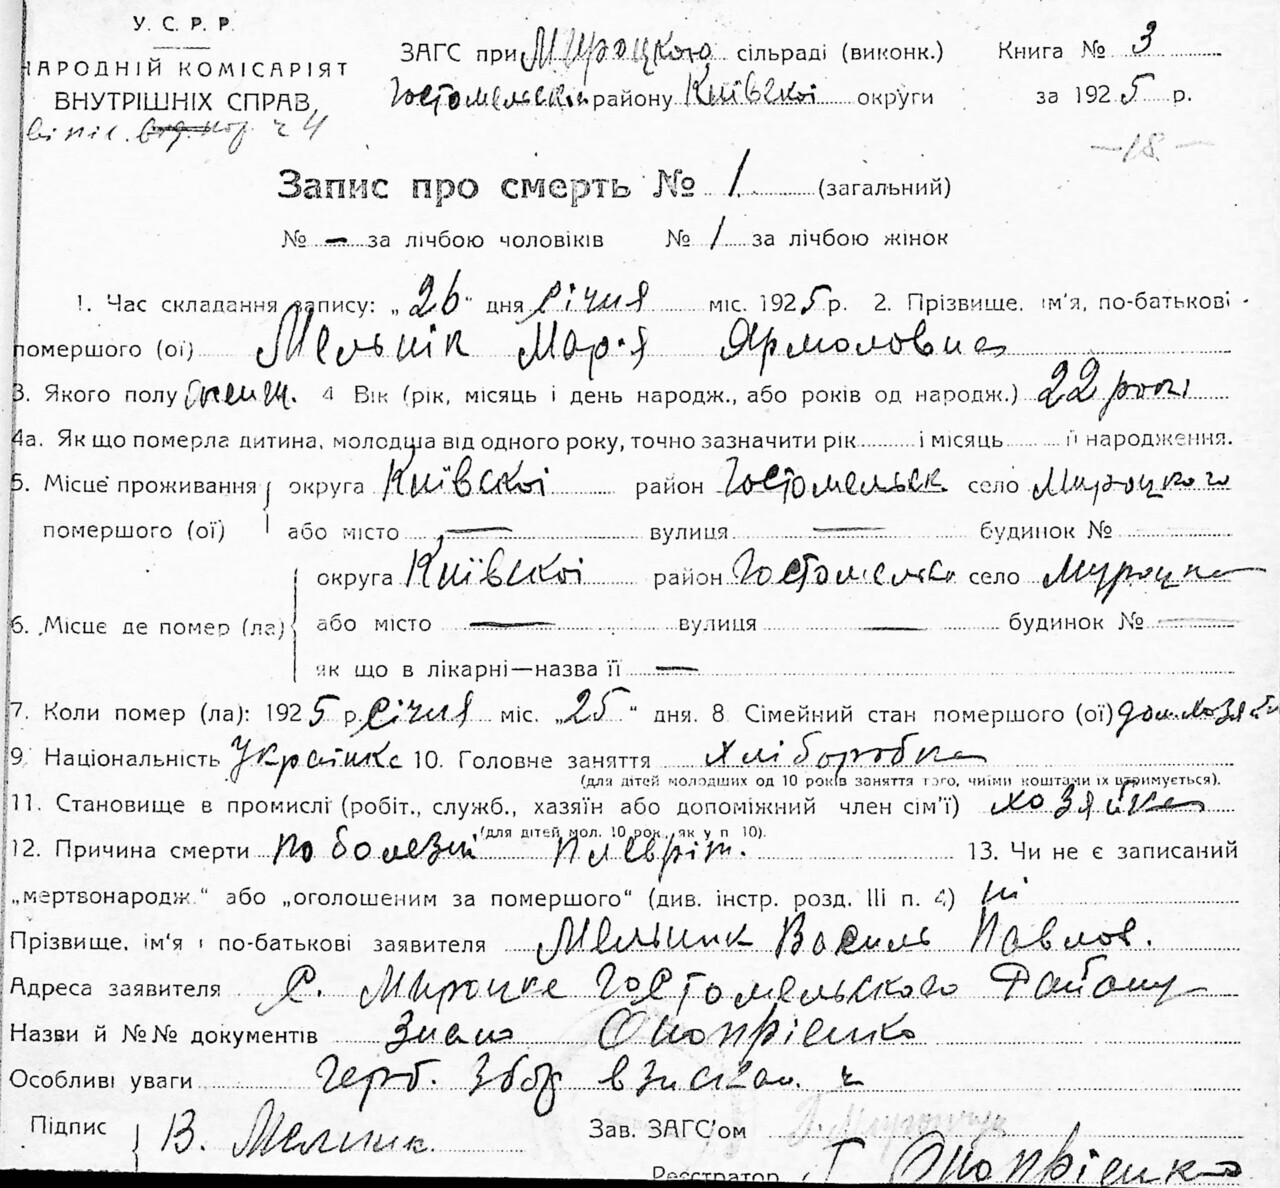 У. С. Р. Р.
НАРОДНІЙ КОМІСАРІЯТ
ВНУТРІШНІХ СПРАВ,
ЗАГС при Мироцкого сільраді (виконк.) Книга № 3
Гостомельскій району Київскоі округи за 1925 р.
—18—
Запис про смерть № 1 (загальний)
№ — за лічбою чоловіків № 1 за лічбою жінок
1. Час складання запису: „26“ дня січня міс. 1925 р. 2. Прізвище, ім'я, по-батькові
помершого (ої) Мельнік Мар'я Ярмоловна
3. Якого полу женщ. 4 Вік (рік, місяць і день народж., або років од народж.) 22 рокі
4а. Як що померла дитина, молодша від одного року, точно зазначити рік і місяць її народження.
5. Місце проживання округа Київскоі район Гостомельск село Мироцкого
помершого (ої) або місто — вулиця — будинок №
округа Київскоі район Гостомельс село Мироцке
6. Місце де помер (ла) або місто — вулиця — будинок № —
як що в лікарні—назва її —
7. Коли помер (ла): 1925 р. січня міс. „25“ дня. 8 Сімейний стан помершого (ої) дом.хозяй
9. Національність Украінка 10. Головне заняття хліборобка
(для дітей молодших од 10 років заняття того, чиїми коштами їх утримується).
11. Становище в промислі (робіт., служб., хазяїн або допоміжний член сім'ї) хозяйка
(для дітей мол. 10 рок., як у п 10).
12. Причина смерти по болезні Плевріт. 13. Чи не є записаний
„мертвонародж.“ або „оголошеним за помершого“ (див. інстр. розд. III п. 4) ні
Прізвище, ім'я і по-батькові заявителя Мельник Василь Павлов.
Адреса заявителя с. Мироцке Гостомельского Району
Назви й №№ документів Знаю Онопрієнко
Особливі уваги Герб. Збор взискан.
Підпис В. Мелник. Зав. ЗАГС'ом
Реєстратор Г Онопрієнко